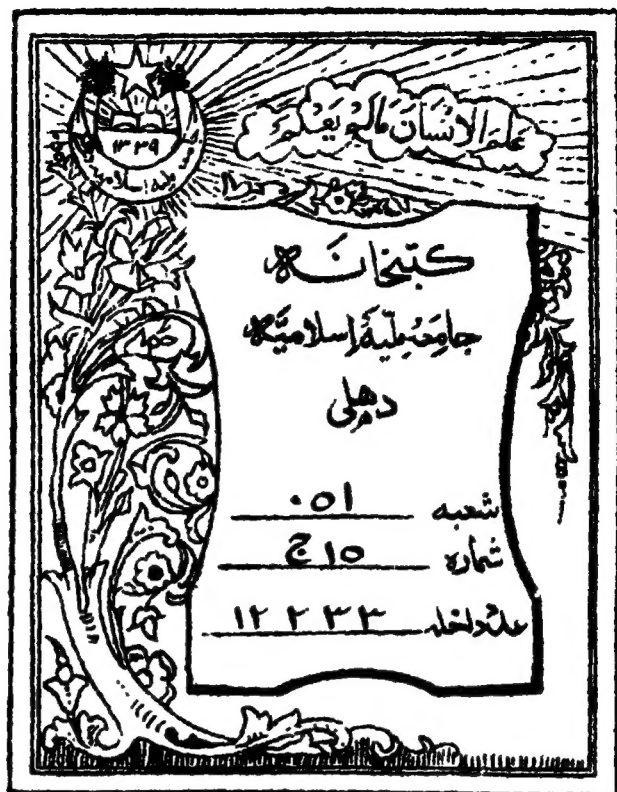 عَلَّمَ الْاِنْسَانَ مَالَمْ يَعْلَمْ
۱۳۳۹
جامعہ ملیہ اسلامیہ
کتبخانہ
جامعہ ملیّہ اسلامیّہ
دھلی
شعبہ ۰۵۱
شمارہ ۱۵ ج
عدد داخلہ ۱۲۲۳۳